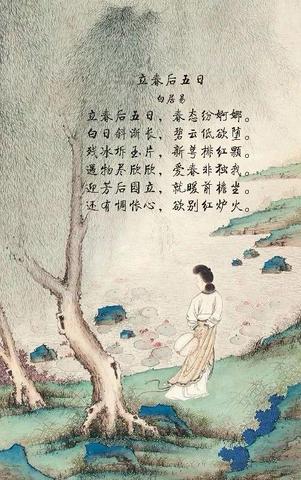 立春后五日
白居易
立春后五日，春态纷婀娜。
白日斜渐长，碧云低欲堕。
残冰坼玉片，新萼排红颗。
遇物尽欣欣，爱春非独我。
迎芳后园立，就暖前檐坐。
还有惆怅心，欲别红炉火。